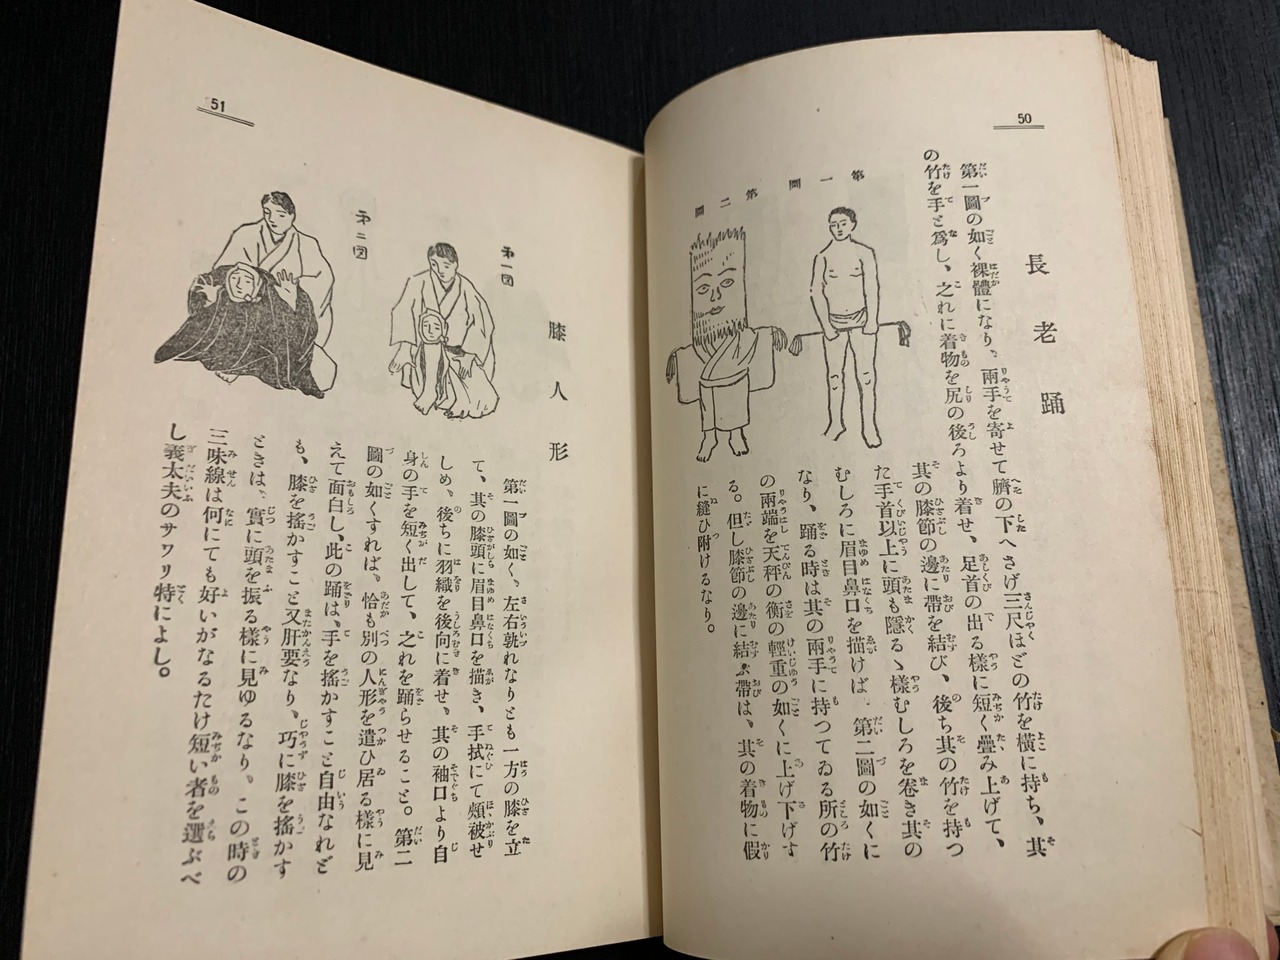 50
長老踊
第一圖の如く裸體になり、兩手を寄せて臍の下へさげ三尺ほどの竹を橫に持ち、其
の竹を手と爲し、之れに着物を尻の後ろより着せ、足首の出る樣に短く疊み上げて、
其の膝節の邊に帶を結び、後ち其の竹を持つ
た手首以上に頭も隱るゝ樣むしろを卷き其の
むしろに眉目鼻口を描けば、第二圖の如くに
なり、踊る時は其の兩手に持つてゐる所の竹
の兩端を天秤の衡の輕重の如くに上げ下げす
る。但し膝節の邊に結ぶ帶は、其の着物に假
に縫ひ附けるなり。
第一圖
第二圖
51
膝人形
第一圖の如く、左右孰れなりとも一方の膝を立
て、其の膝頭に眉目鼻口を描き、手拭にて頰被せ
しめ、後ちに羽織を後向に着せ、其の袖口より自
身の手を短く出して、之れを踊らせること。第二
圖の如くすれば、恰も別の人形を遣ひ居る樣に見
えて面白し、此の踊は、手を搖かすこと自由なれど
も、膝を搖かすこと又肝要なり、巧に膝を搖かす
ときは、實に頭を振る樣に見ゆるなり。この時の
三味線は何にても好いがなるたけ短い者を選ぶべ
し義太夫のサワリ特によし。
第一図
第二図